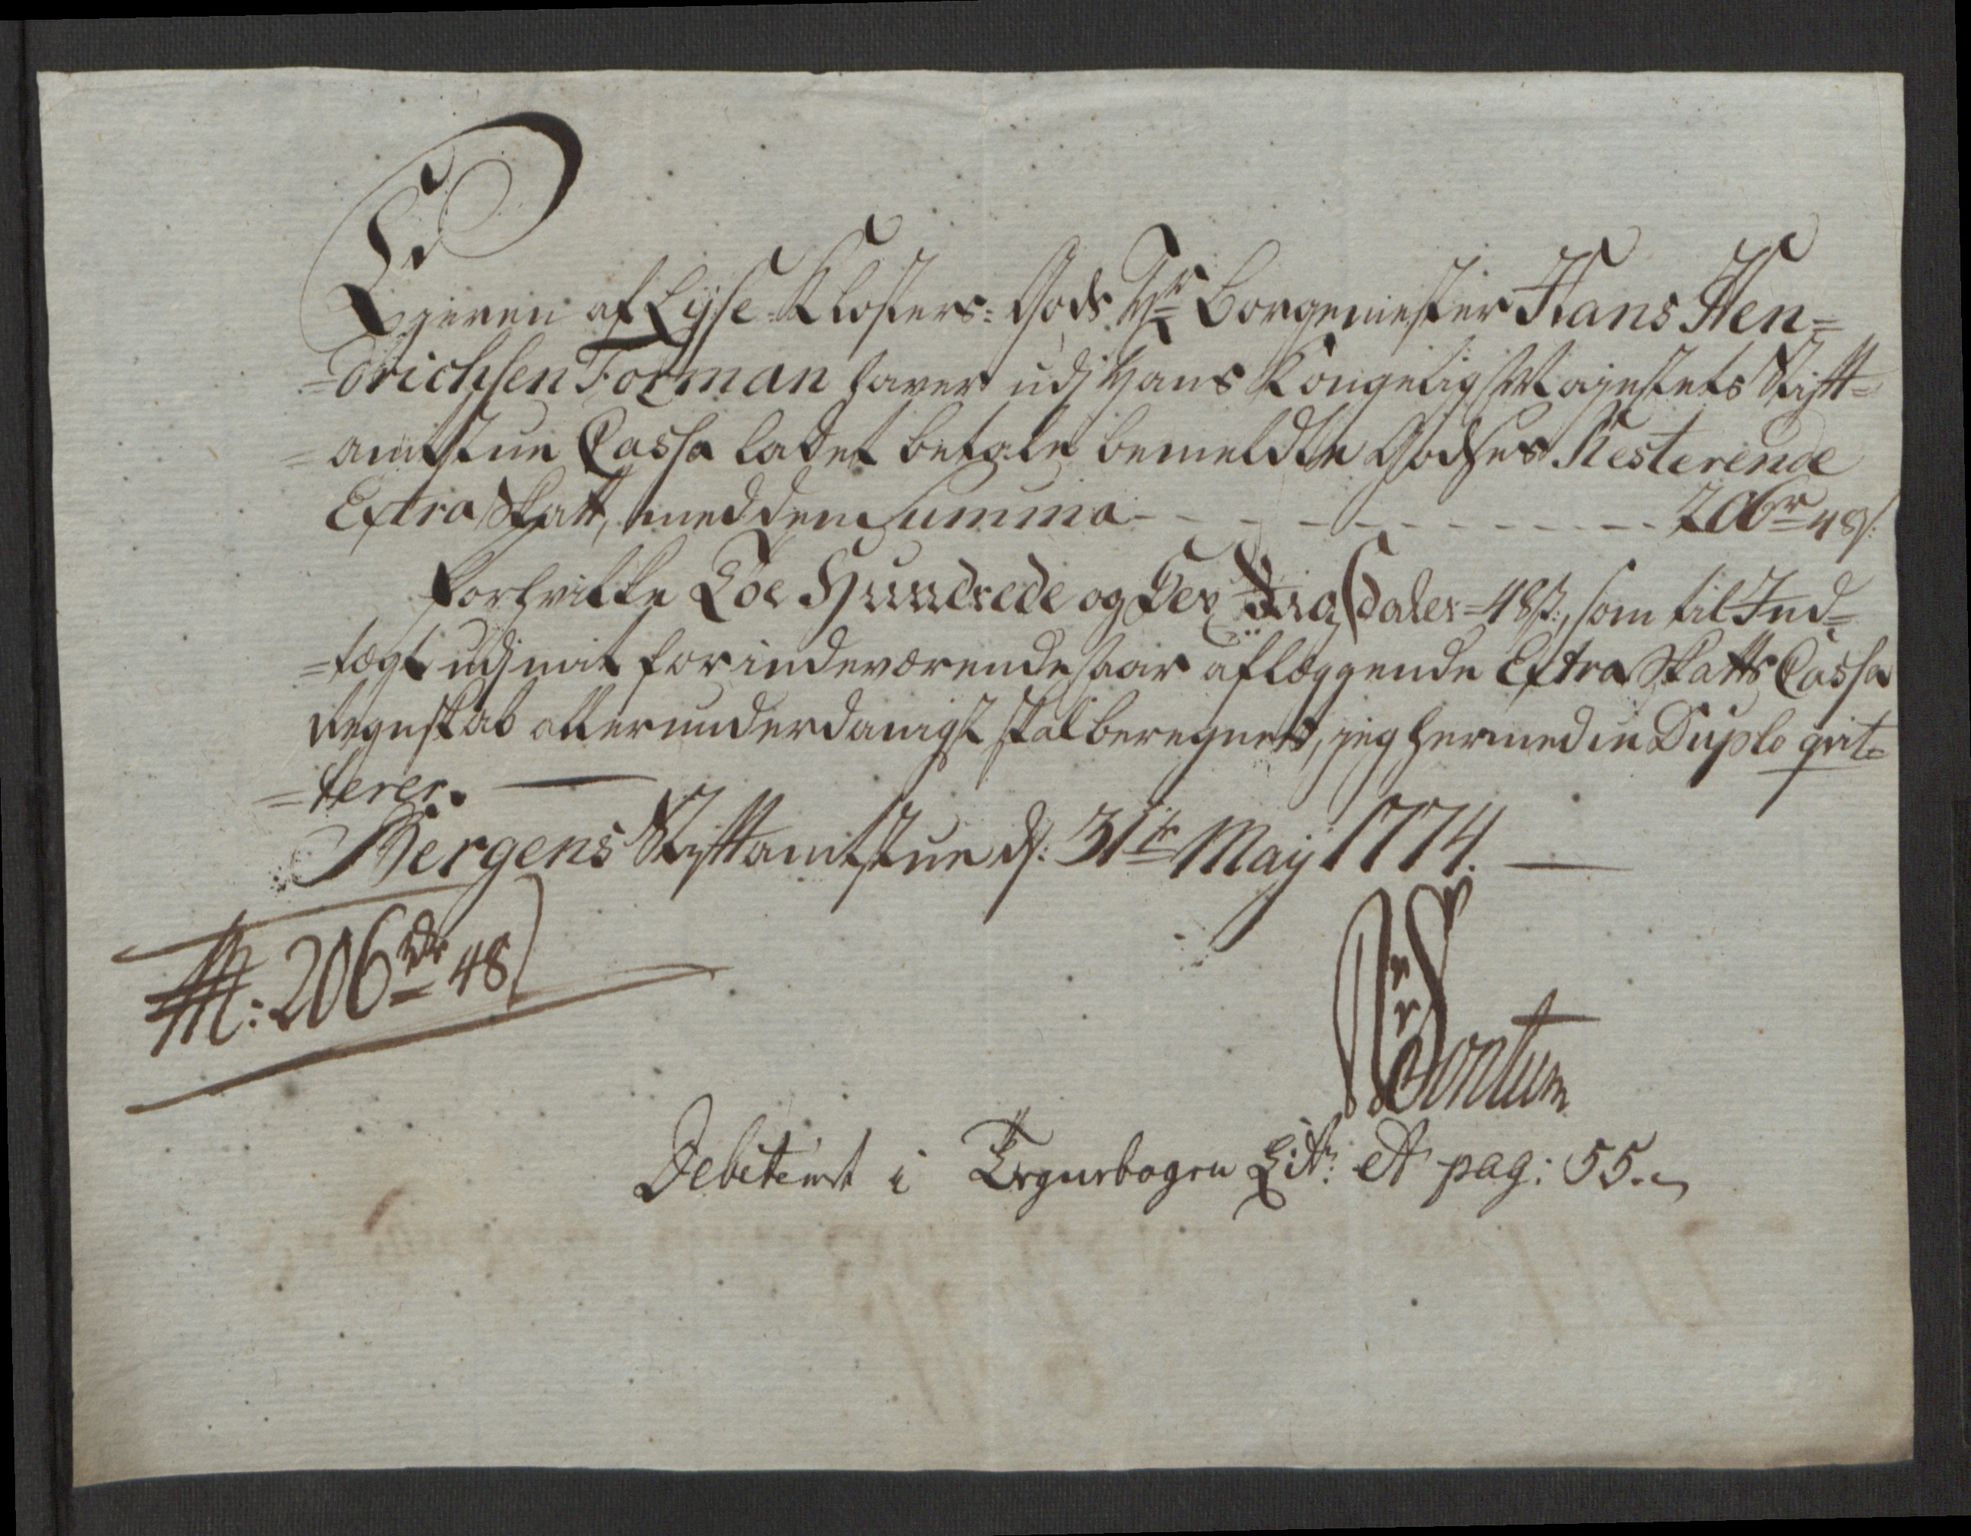 Ejeren af Lyse-Klosters-Gods Hr Borgemester Hans Hen-
-drichsen Forman haver udj Hans Kongelig Majestets Stift-
-amtstue Cassa ladet betale bemeldte Godses Resterende
Extra Skatt, med den Summa - - - - - - - - 206r 48s:
forhvilke Toe Hundrede og Sex Rigsdaler 48s:, som til Ind-
-tægt udj mit for indeværende aar aflæggende Extra Skatts Cassa
Regnskab allerunderdanigst skal beregnes, jeg hermed in Duplo qvit-
-terer.
Bergens Stiftamtstue d: 31te Maij 1774.
206 rdr 48s
Sontum
Debiteret i Bogen Litr: A pag: 55.